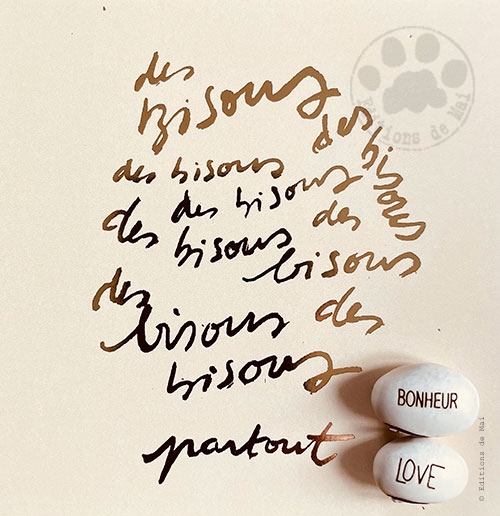 des
Bisous
des bisous
des bisous
des des bisous
bisous des
bisous
des
bisous des
bisous
partout
BONHEUR
LOVE
Editions de Mai
© Editions de Mai